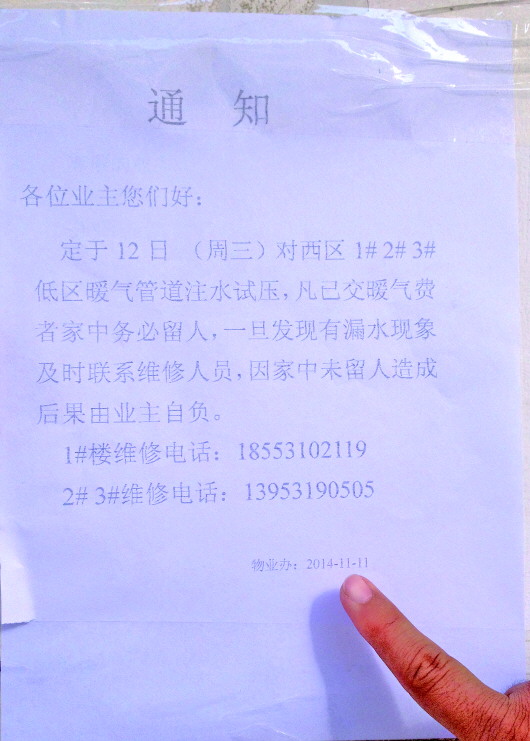 通 知
各位业主您们好：
定于 12 日 （周三）对西区 1# 2# 3#
低区暖气管道注水试压，凡已交暖气费
者家中务必留人，一旦发现有漏水现象
及时联系维修人员，因家中未留人造成
后果由业主自负。
1#楼维修电话：18553102119
2# 3#维修电话：13953190505
物业办：2014-11-11